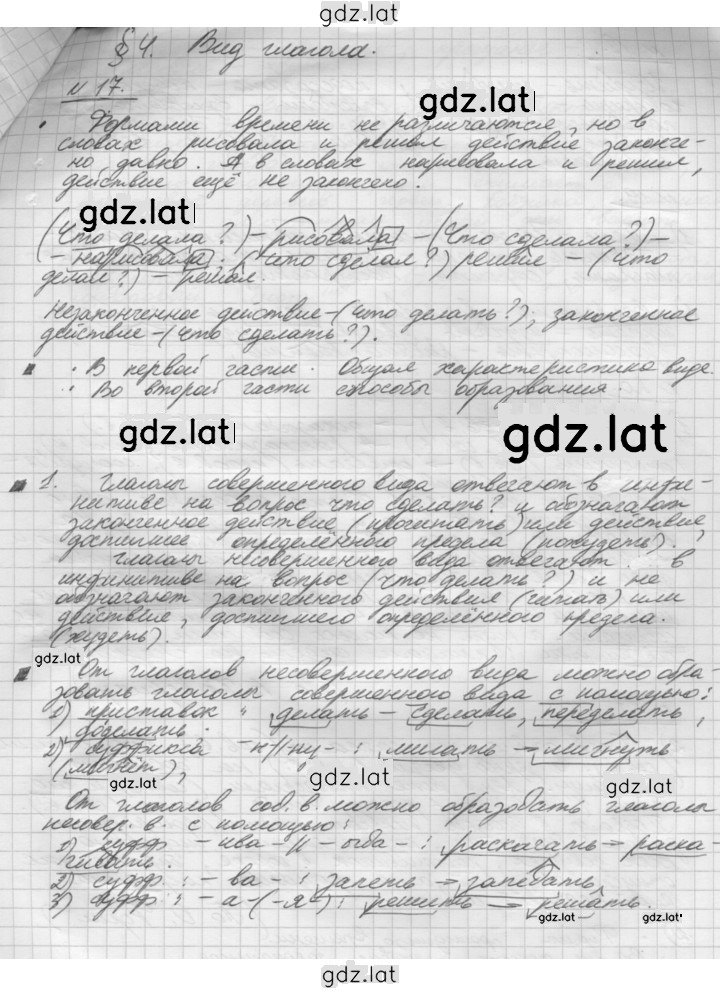 gdz.lat
§ 4. Вид глагола.
N 17.
gdz.lat
• Формами времени не различаются, но в
словах рисовала и решил действие законче-
но давно. А в словах нарисовала и решил,
действие ещё не закончено.
gdz.lat
(Что делала?) – рисовала – (Что сделала?) –
– нарисовала. (Что сделал?) решил – (что
делал?) – решал.
Незаконченное действие – (что делать?); законченное
действие – (что сделать?).
• В первой части. Общая характеристика вида.
• Во второй части способы образования.
gdz.lat gdz.lat
1. Глаголы совершенного вида отвечают в инфи-
нитиве на вопрос что сделать? и обозначают
законченное действие (прочитать) или действие,
достигшее определённого предела (похудеть).
Глаголы несовершенного вида отвечают в
инфинитиве на вопрос (что делать?) и не
обозначают законченного действия (читать) или
действие, достигшего определённого предела.
(худеть).
gdz.lat
От глаголов несовершенного вида можно обра-
зовать глаголы совершенного вида с помощью:
1) приставок: делать – сделать, переделать,
доделать.
2) суффикса -н//ну- : мигать → мигнуть
(мигнёт),
gdz.lat gdz.lat
От глаголов сов. в. можно образовать глаголы
несовер. в. с помощью:
1) суфф – ива – // – ыва – : раскачать → раска-
чивать.
2) суфф: – ва – : запеть → запевать
3) суфф: – а – (-я-): решить → решать.
gdz.lat gdz.lat
gdz.lat